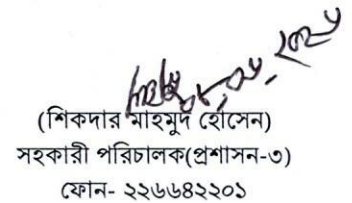 (শিকদার মাহমুদ হোসেন)
সহকারী পরিচালক(প্রশাসন-৩)
ফোন- ২২৬৬৪২২০১